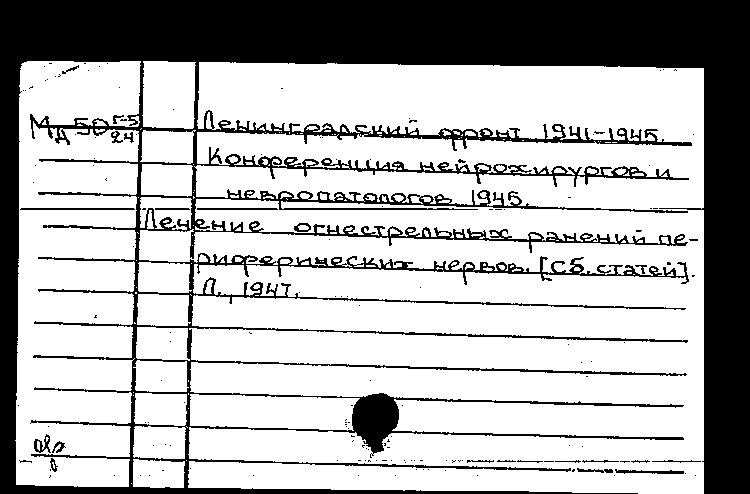 Мд 50 Г-5/24 Ленинградский фронт 1941-1945.
Конференция нейрохирургов и
невропатологов 1945.
Лечение огнестрельных ранений пе-
риферических нервов. [Сб. статей].
Л., 1947.